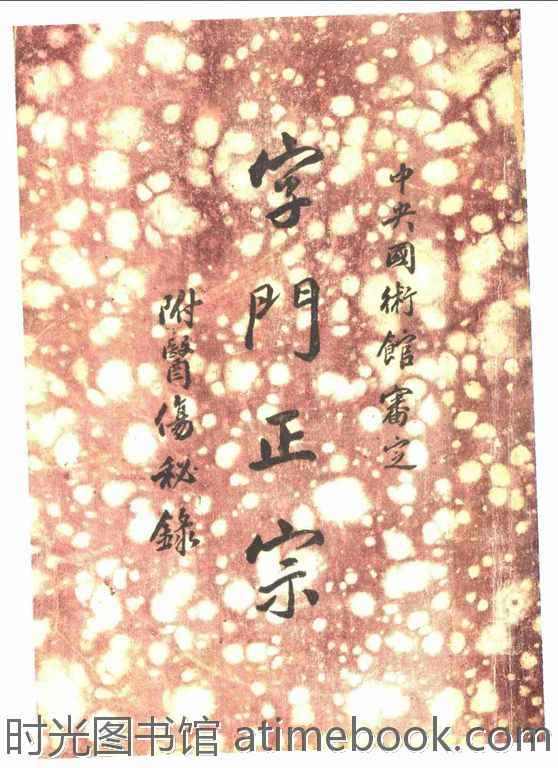 中央國術館審定
字門正宗
附醫傷秘錄
时光图书馆 atimebook.com